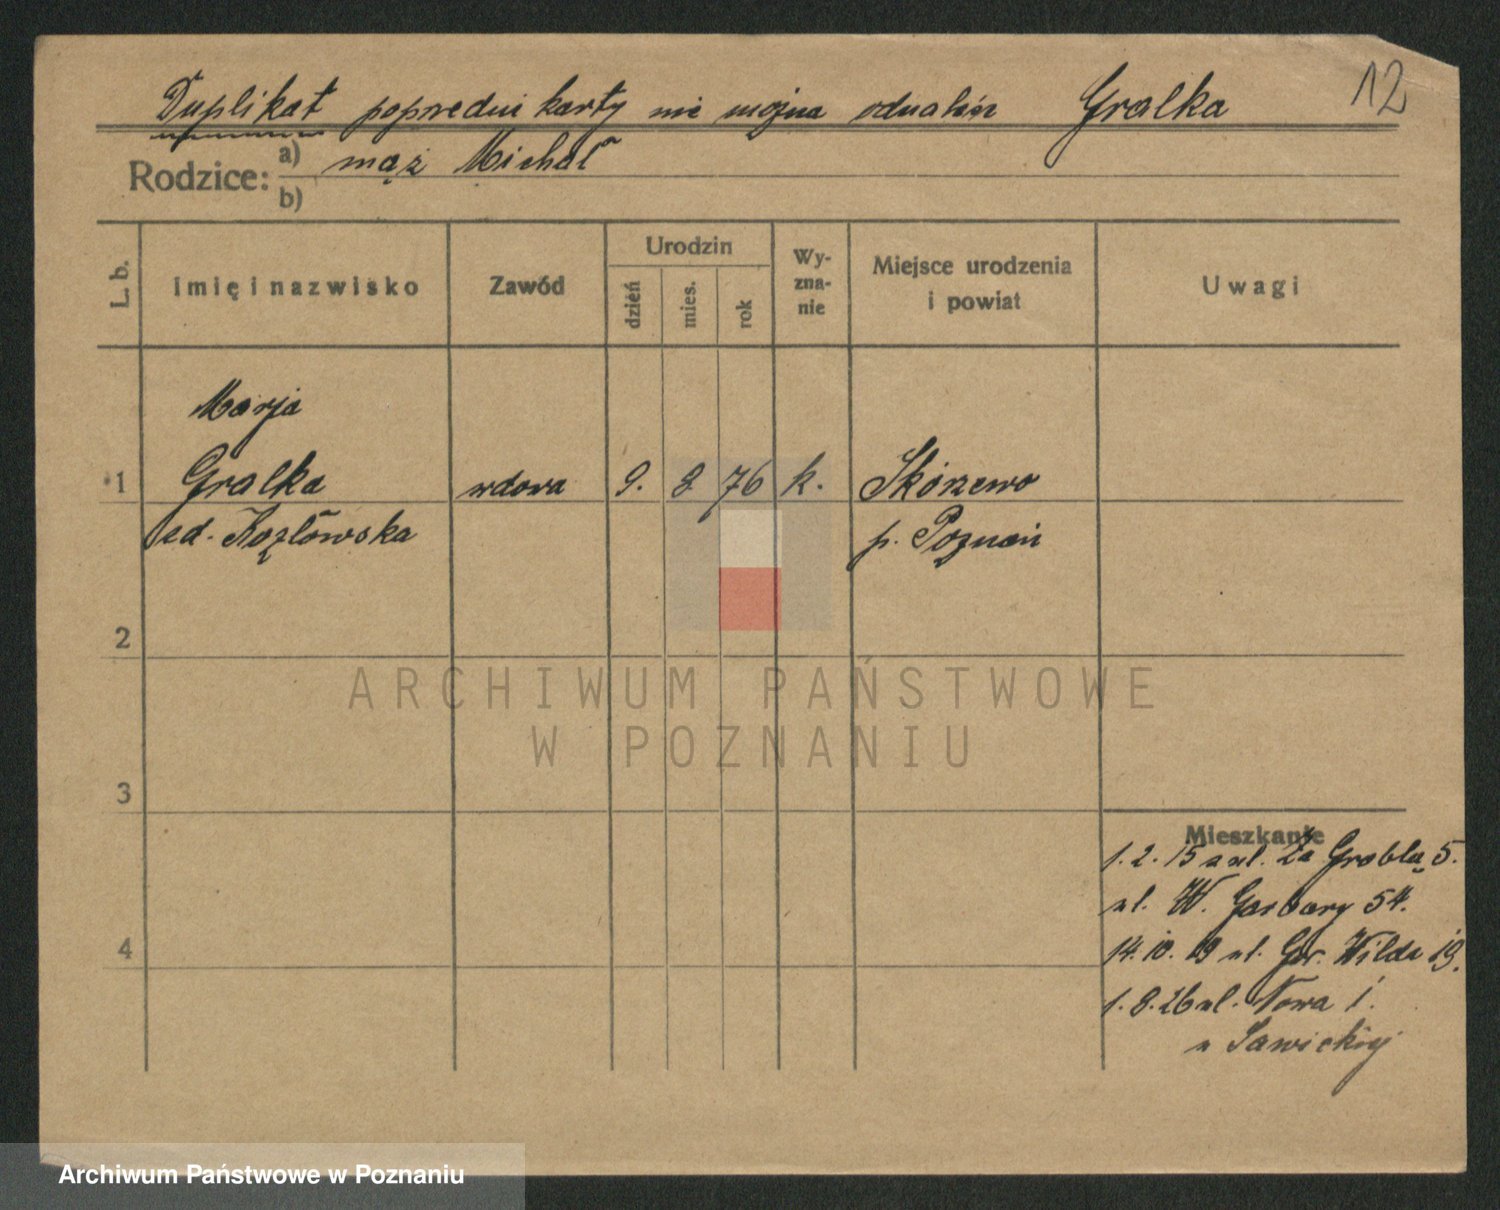 Duplikat poprzedni karty nie można odnaleźć Gralka 12
Rodzice: a) mąż Michał
b)
L. b. Imię i nazwisko Zawód Urodzin dzień mies. rok Wyznanie Miejsce urodzenia i powiat Uwagi
Marja
1 Gralka wdowa 9. 8 76 k. Skórzewo
zd. Kozłowska p. Poznań
2
ARCHIWUM PAŃSTWOWE
W POZNANIU
3
Mieszkanie
1. 2. 15 a ul. Za Groblą 5.
ul. W. Garbary 54.
4
14. 10. 19 ul. Gór. Wilda 19.
1. 8. 26 ul. Nowa 1.
u Sawickiej
Archiwum Państwowe w Poznaniu